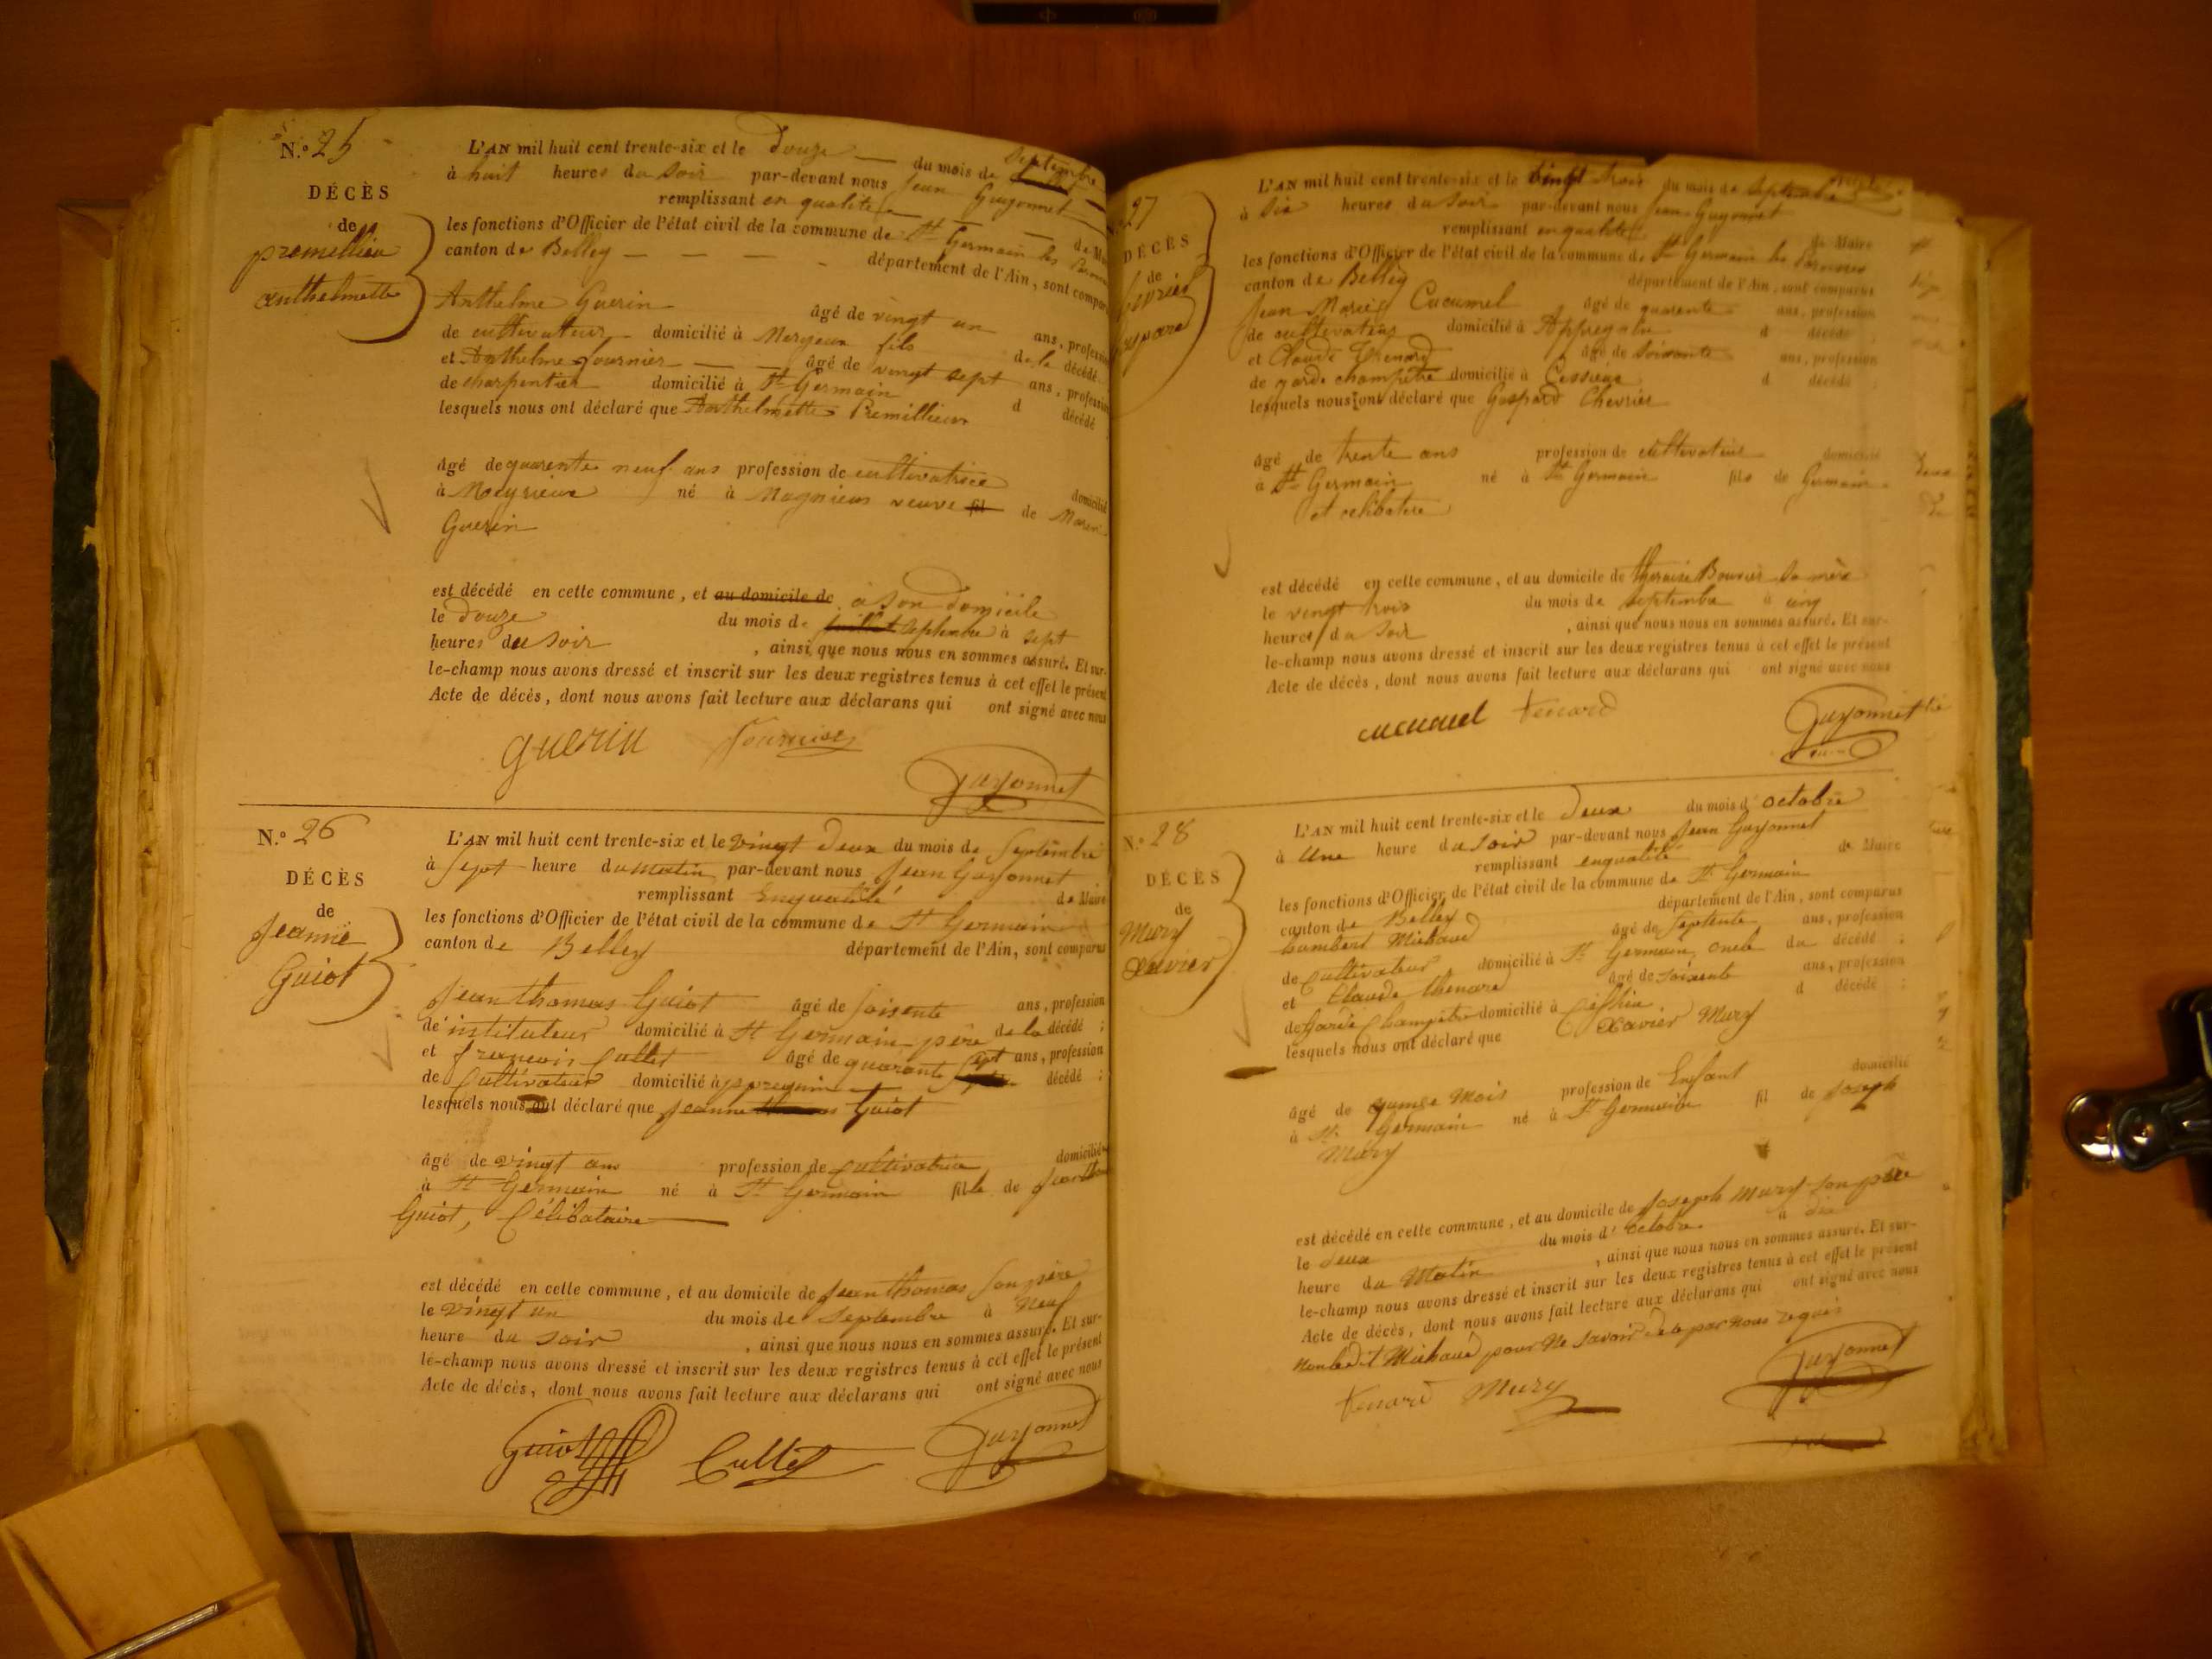 N.º 25
DÉCÈS
de
premellieu
anthelmette
L'AN mil huit cent trente-six et le douze du mois de septembre
à huit heures du soir par-devant nous Jean Guyonnet
remplissant en qualité de Maire
les fonctions d'Officier de l'état civil de la commune de St Germain les Paroisses
canton de Belley département de l'Ain, sont comparus
Anthelme Guerin âgé de vingt un ans, profession
de cultivateur domicilié à Meryeux fils de la décédé
et Anthelme fournier âgé de vingt sept ans, profession
de charpentier domicilié à St Germain d décédé
lesquels nous ont déclaré que Anthelmette Premillieux
âgé de quarente neuf ans profession de cultivatrice domicilié
à Meyrieux né à Magnieux veuve fil de
Guerin
est décédé en cette commune, et au domicile de a son domicile
le douze du mois de juillet septembre à sept
heures du soir, ainsi que nous nous en sommes assuré. Et sur-
le-champ nous avons dressé et inscrit sur les deux registres tenus à cet effet le présent
Acte de décès, dont nous avons fait lecture aux déclarans qui ont signé avec nous
guerin fournier
Guyonnet
N.º 26
DÉCÈS
de
Jeanne
Guiot
L'AN mil huit cent trente-six et le vingt deux du mois de Septembre
à Sept heure du matin par-devant nous Jean Guyonnet
remplissant Enqualité de Maire
les fonctions d'Officier de l'état civil de la commune de St Germain
canton de Belley département de l'Ain, sont comparus
Jean thomas Guiot âgé de soisente ans, profession
de instituteur domicilié à St Germain père de la décédé ;
et francois Cullet âgé de quarante sept ans, profession
de Cultivateur domicilié à décédé ;
lesquels nous ont déclaré que Jeanne Guiot
âgé de vingt ans profession de Cultivatrice domicilié
à St Germain né à St Germain fille de Jean thomas
Guiot, Célibataire
est décédé en cette commune, et au domicile de Jean thomas Son père
le vingt un du mois de septembre à neuf
heure du soir, ainsi que nous nous en sommes assuré. Et sur-
le-champ nous avons dressé et inscrit sur les deux registres tenus à cet effet le présent
Acte de décès, dont nous avons fait lecture aux déclarans qui ont signé avec nous
Guiot Cullet Guyonnet
27
DÉCÈS
de
L'AN mil huit cent trente-six et le vingt trois du mois de septembre
à six heures du soir par-devant nous Jean Guyonnet
remplissant en qualité de Maire
les fonctions d'Officier de l'état civil de la commune de St Germain les Paroisses
canton de Belley département de l'Ain, sont comparus
Jean Marie Cucumel âgé de quarente ans, profession
de cultivateur domicilié à d décédé ;
et Claude Thenard âgé de soixante ans, profession
de garde champêtre domicilié à Cessieux d décédé ;
lesquels nous ont déclaré que Gaspard Chevrier
âgé de trente ans profession de cultivateur domicilié
à St Germain né à St Germain fils de Germain
et celibatere
est décédé en cette commune, et au domicile de Bouvier sa mère
le vingt trois du mois de septembre à cinq
heures du soir, ainsi que nous nous en sommes assuré. Et sur-
le-champ nous avons dressé et inscrit sur les deux registres tenus à cet effet le présent
Acte de décès, dont nous avons fait lecture aux déclarans qui ont signé avec nous
cucumel tenard Guyonnet
N.º 28
DÉCÈS
de
Mury
Xavier
L'AN mil huit cent trente-six et le deux du mois d'octobre
à Une heure du soir par-devant nous Jean Guyonnet
remplissant enqualité de Maire
les fonctions d'Officier de l'état civil de la commune de St Germain
canton de Belley département de l'Ain, sont comparus
Lambert Michaud âgé de septente ans, profession
de Cultivateur domicilié à St Germain, oncle du décédé ;
et Claude thenard âgé de soixente ans, profession
de Garde Champêtre domicilié à d décédé ;
lesquels nous ont déclaré que Xavier Mury
âgé de Mois profession de Enfant domicilié
à St Germain né à St Germain fil de Joseph
Mury
est décédé en cette commune, et au domicile de Joseph Mury son père
le deux du mois d'octobre à dix
heure du Matin, ainsi que nous nous en sommes assuré. Et sur-
le-champ nous avons dressé et inscrit sur les deux registres tenus à cet effet le présent
Acte de décès, dont nous avons fait lecture aux déclarans qui ont signé avec nous
non ledit Michaud pour ne savoir de ce par nous requis
tenard Mury Guyonnet